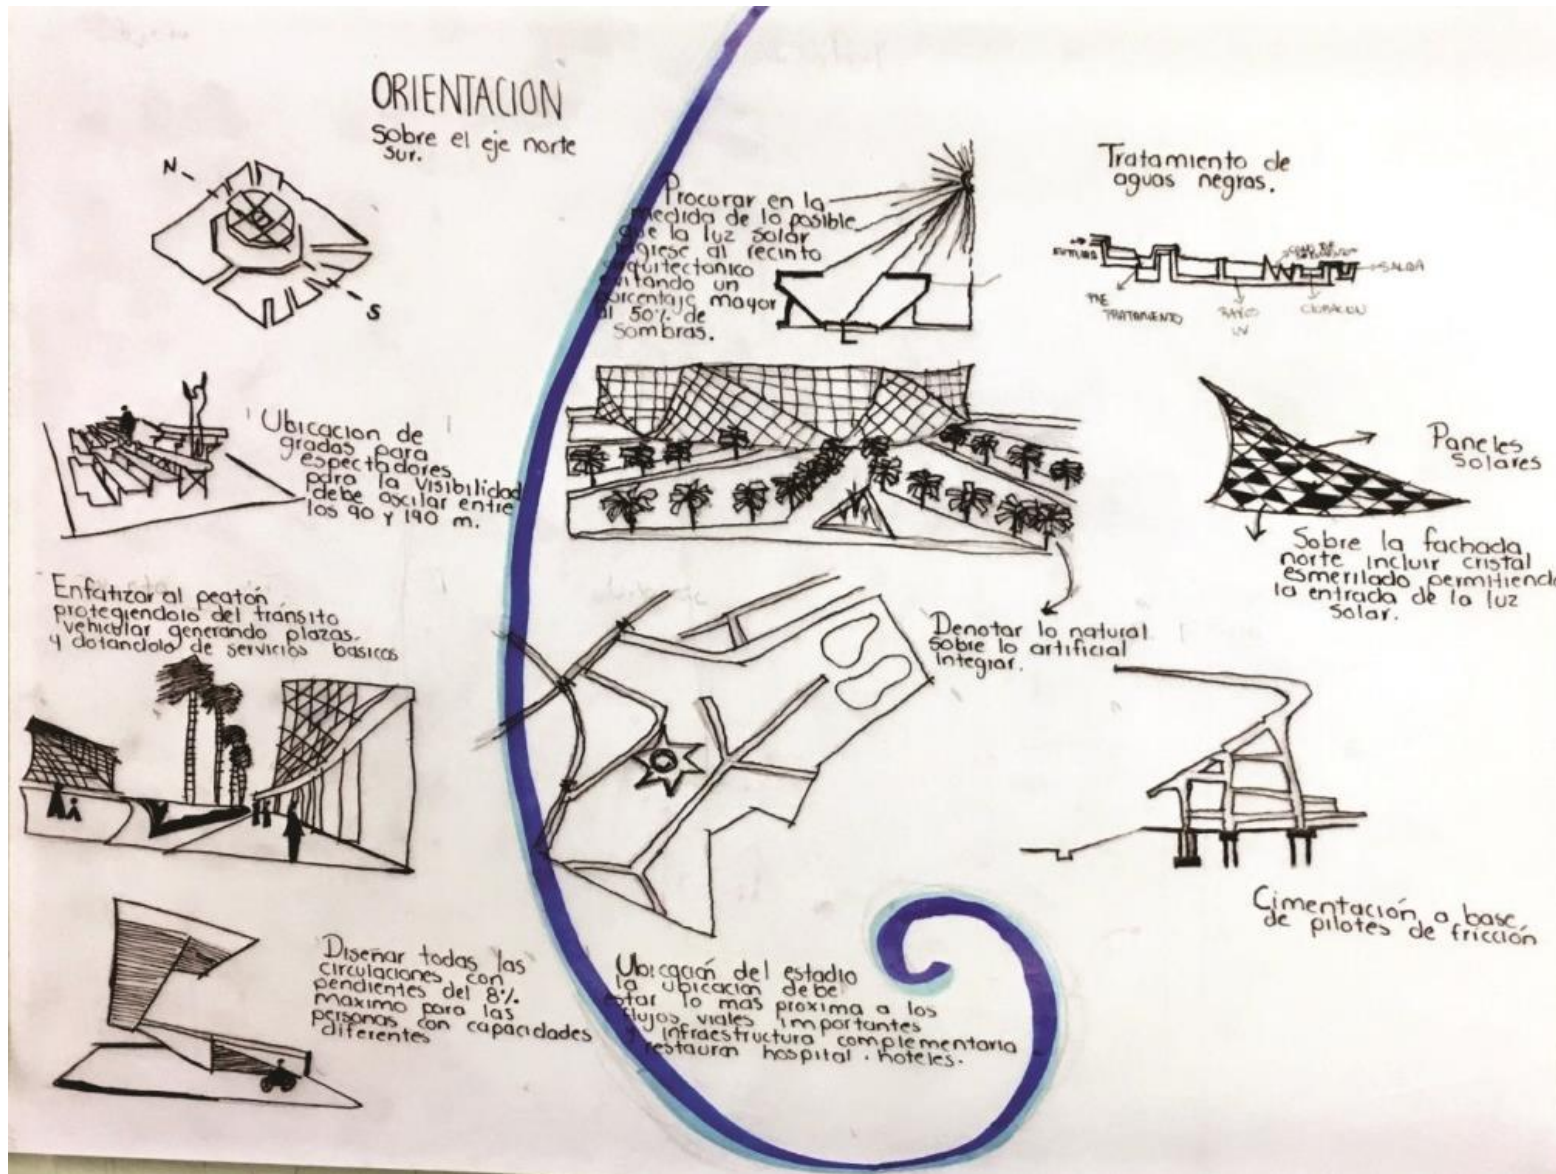 ORIENTACION
Sobre el eje norte
sur.
N
S
Ubicacion de
gradas para
espectadores
para la visibilidad
debe oscilar entre
los 90 y 190 m.
Enfatizar al peatón
protegiendolo del tránsito
vehicular generando plazas.
y dotandolo de servicios basicos
Diseñar todas las
circulaciones con
pendientes del 8%
maximo para las
personas con capacidades
diferentes
Procurar en la
medida de lo posible
que la luz solar
ingrese al recinto
arquitectonico
evitando un
porcentaje mayor
al 50% de
sombras.
Denotar lo natural
sobre lo artificial
integrar.
Ubicación del estadio
la ubicacion debe
estar lo mas proxima a los
flujos viales importantes
infraestructura complementaria
restauran hospital. hoteles.
Tratamiento de
aguas negras.
SALIDA
PRE
TRATAMIENTO
RAYOS
UV
CLORACION
Paneles
Solares
Sobre la fachada
norte incluir cristal
esmerilado permitiendo
la entrada de la luz
solar.
Cimentación a base
de pilotes de fricción